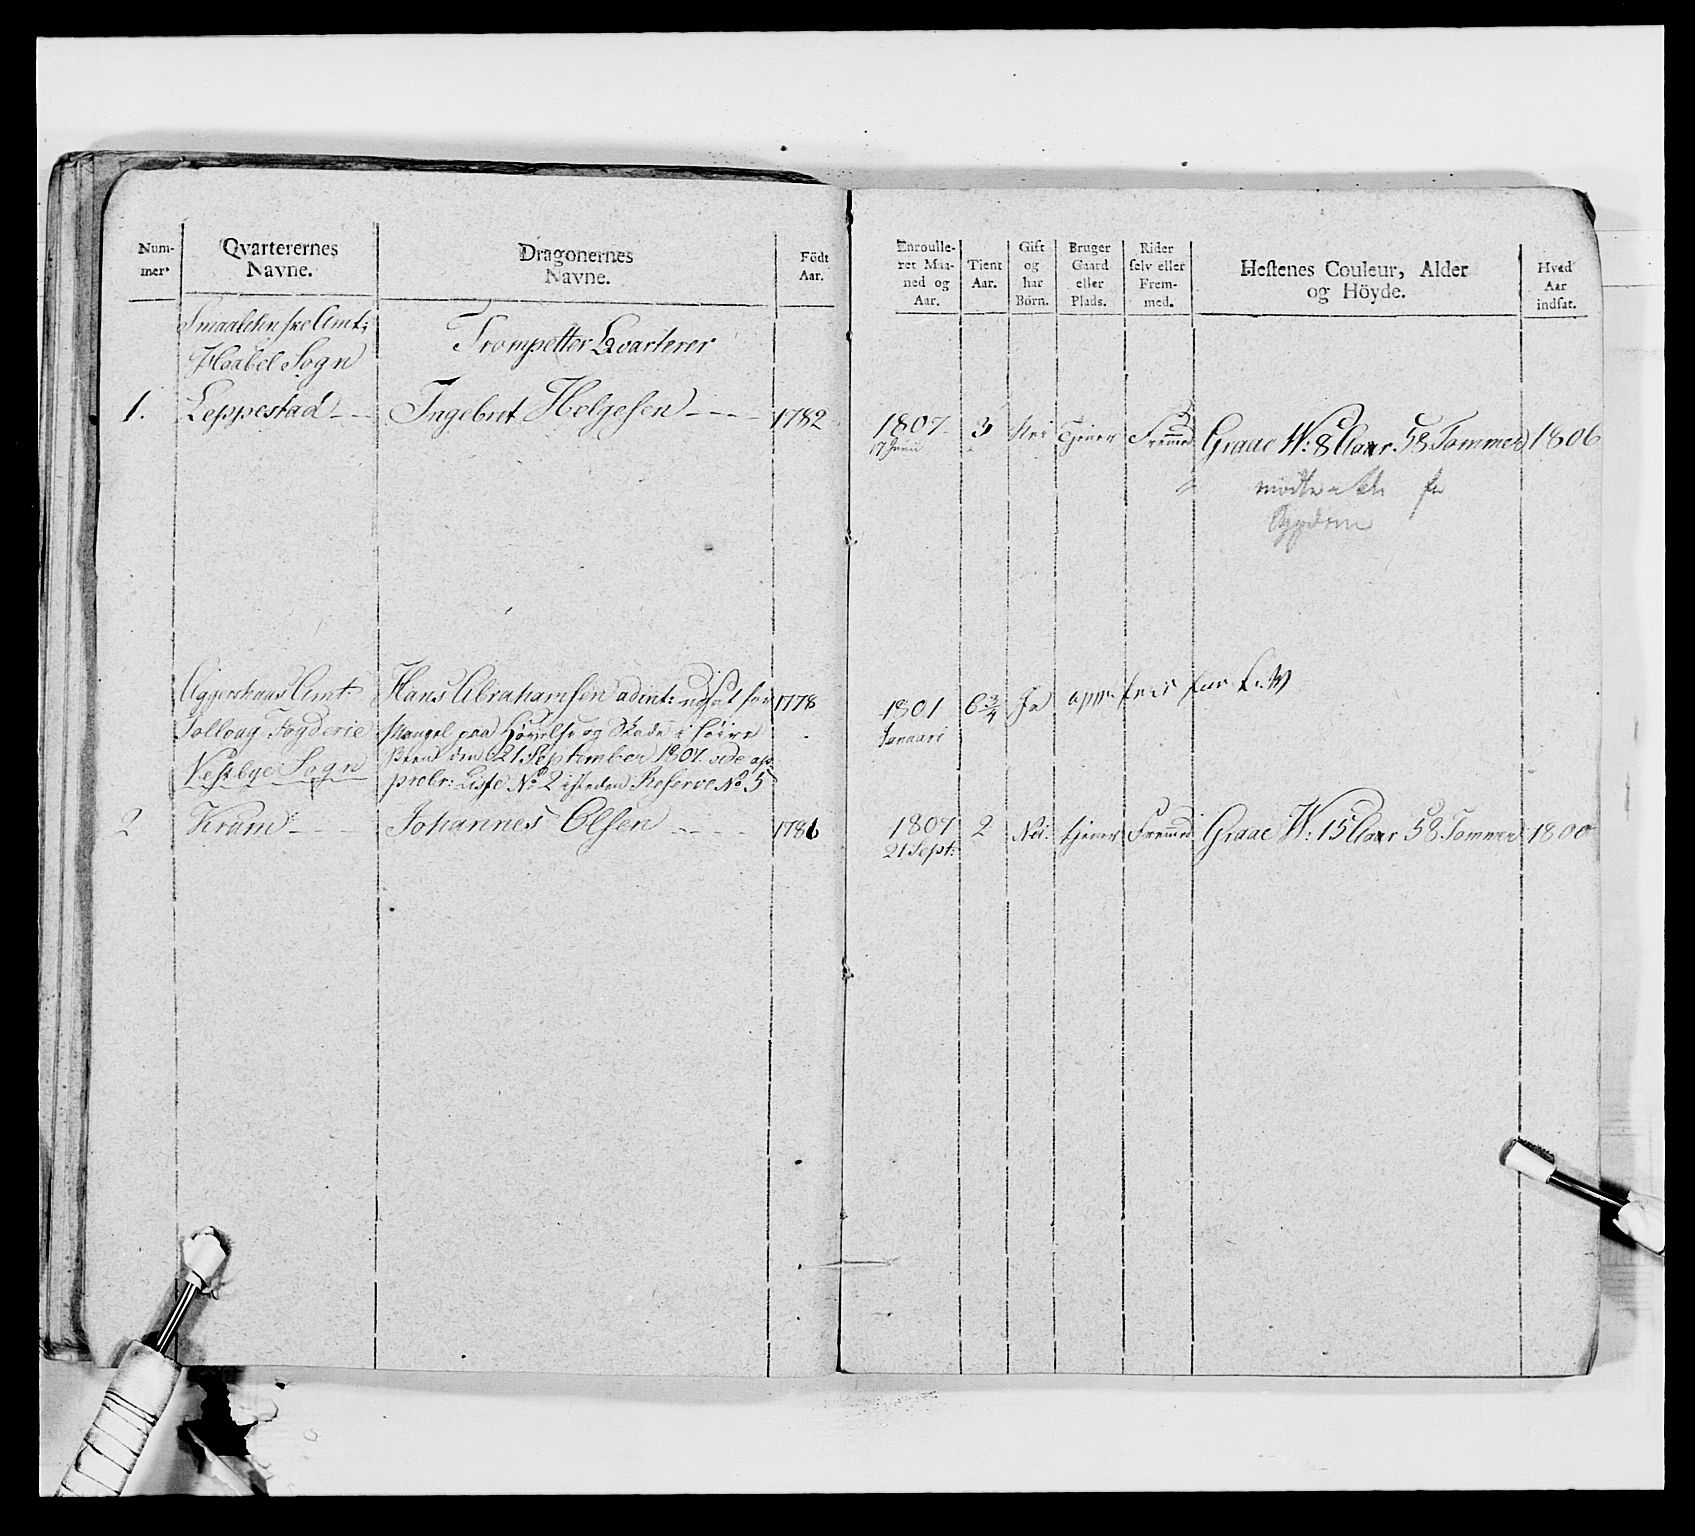 Num-
mer.
Qvarterernes
Navne.
Dragonernes
Navne.
Födt
Aar.
Enroulle-
ret Maa-
ned og
Aar.
Tient
Aar.
Gift
og
har
Börn.
Bruger
Gaard
eller
Plads.
Rider
selv eller
Frem-
med.
Hestenes Couleur, Alder
og Höyde.
Hvad
Aar
indsat.
Smaalehnske Amt:
Haabel Sogn
Trompetter Qvarterer
1. Leppestad Ingebret Helgesen 1782 1807 3 Nei Tjener Fremmed Graae W: 8 Aar 58 Tommer 1806
17 Junii
Aggershuus Amt: Hans Abrahamsen udsat for 1778 1801 6 3/4 Ja
Januari
Folloug Fogderie Mangel paa Hørelse og Skade i høire
Been den 21 September 1807. vide ap-
Vestbye Sogn
probr: Liste No 2 isteden Reserve No 5
2 Kram Johannes Olsen 1786 1807 2 Nei tjener Fremmed Graae W: 15 Aar 58 Tommer 1800
21 Sept: